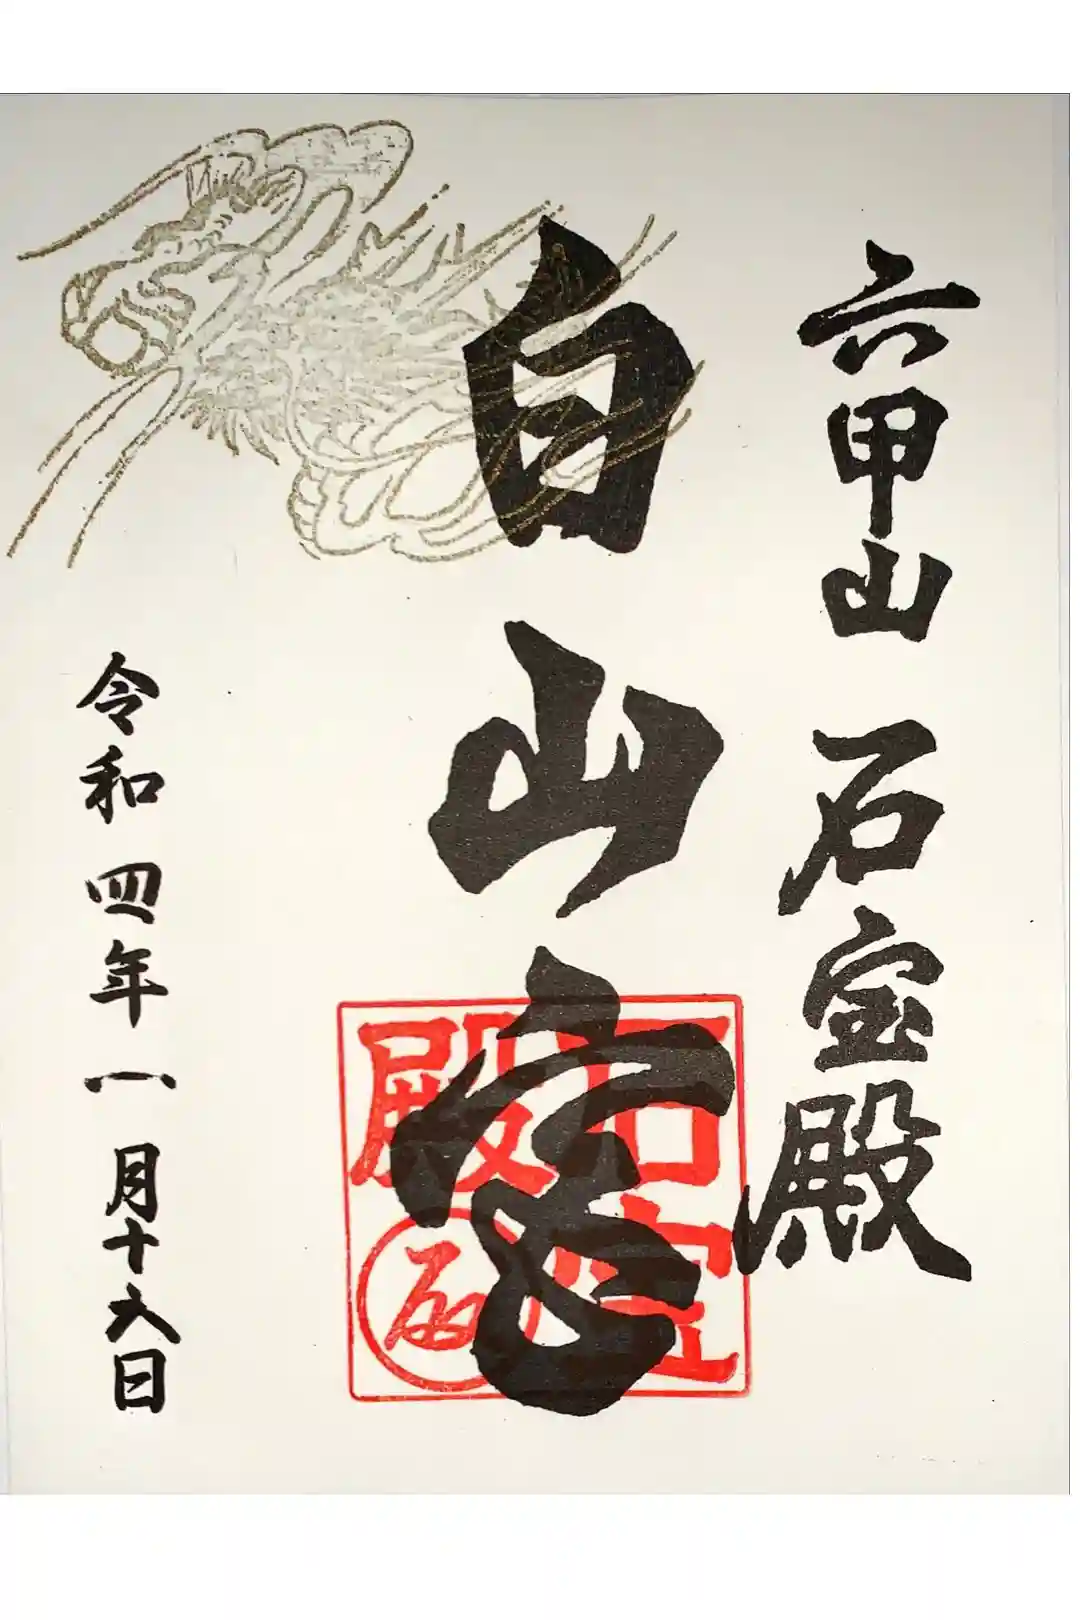 六甲山 石宝殿
白山宮
令和四年一月十六日
石宝殿